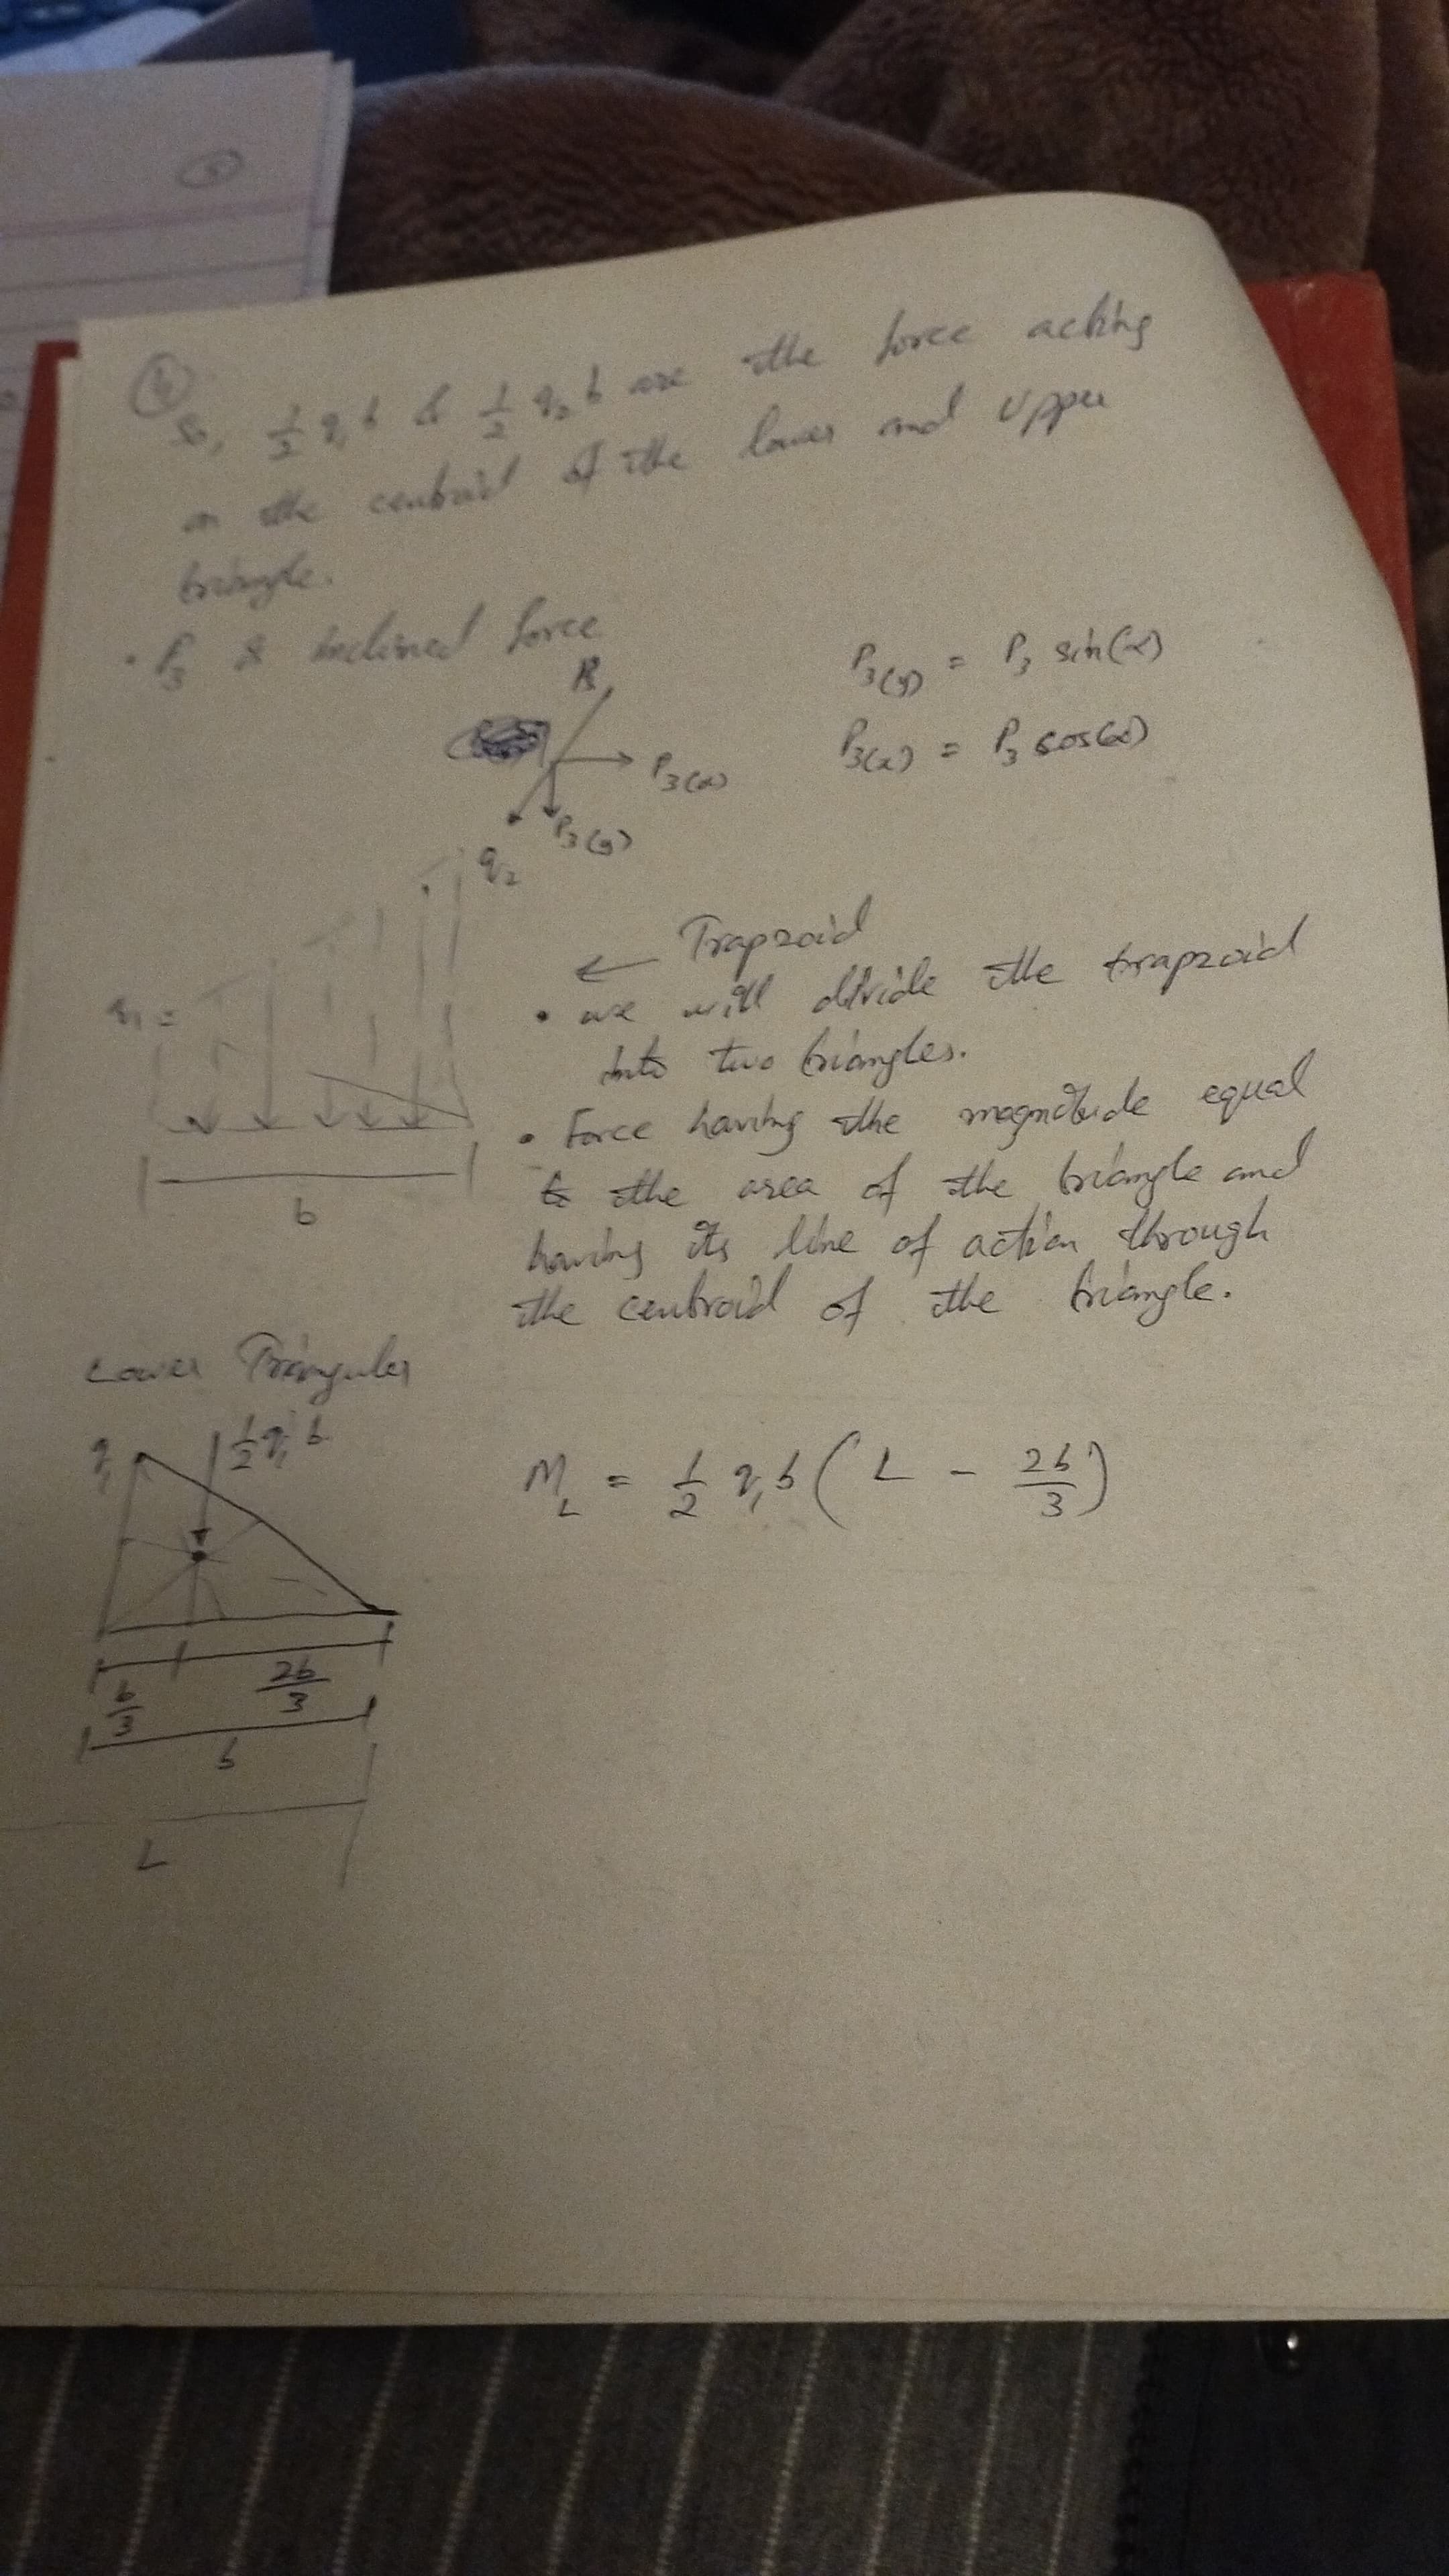 ⑥
So, 1/2 q₁ b & 1/2 q₂ b are the force acting
on the centroid of the lower and Upper
triangle.
• P₃ is inclined force
P₃
P₃(y) = P₃ sin(α)
P₃(x) = P₃ cos(α)
P₃(x)
P₃(y)
q₂
q₁ =
← Trapzoid
• we will divide the trapzoid
into two triangles.
• Force having the magnitude equal
to the area of the triangle and
having its line of action through
the centroid of the triangle.
b
Lower Triangular
q₁
1/2 q₁ b
M_L = 1/2 q₁ b ( L - 2b/3 )
b/3
2b/3
b
L